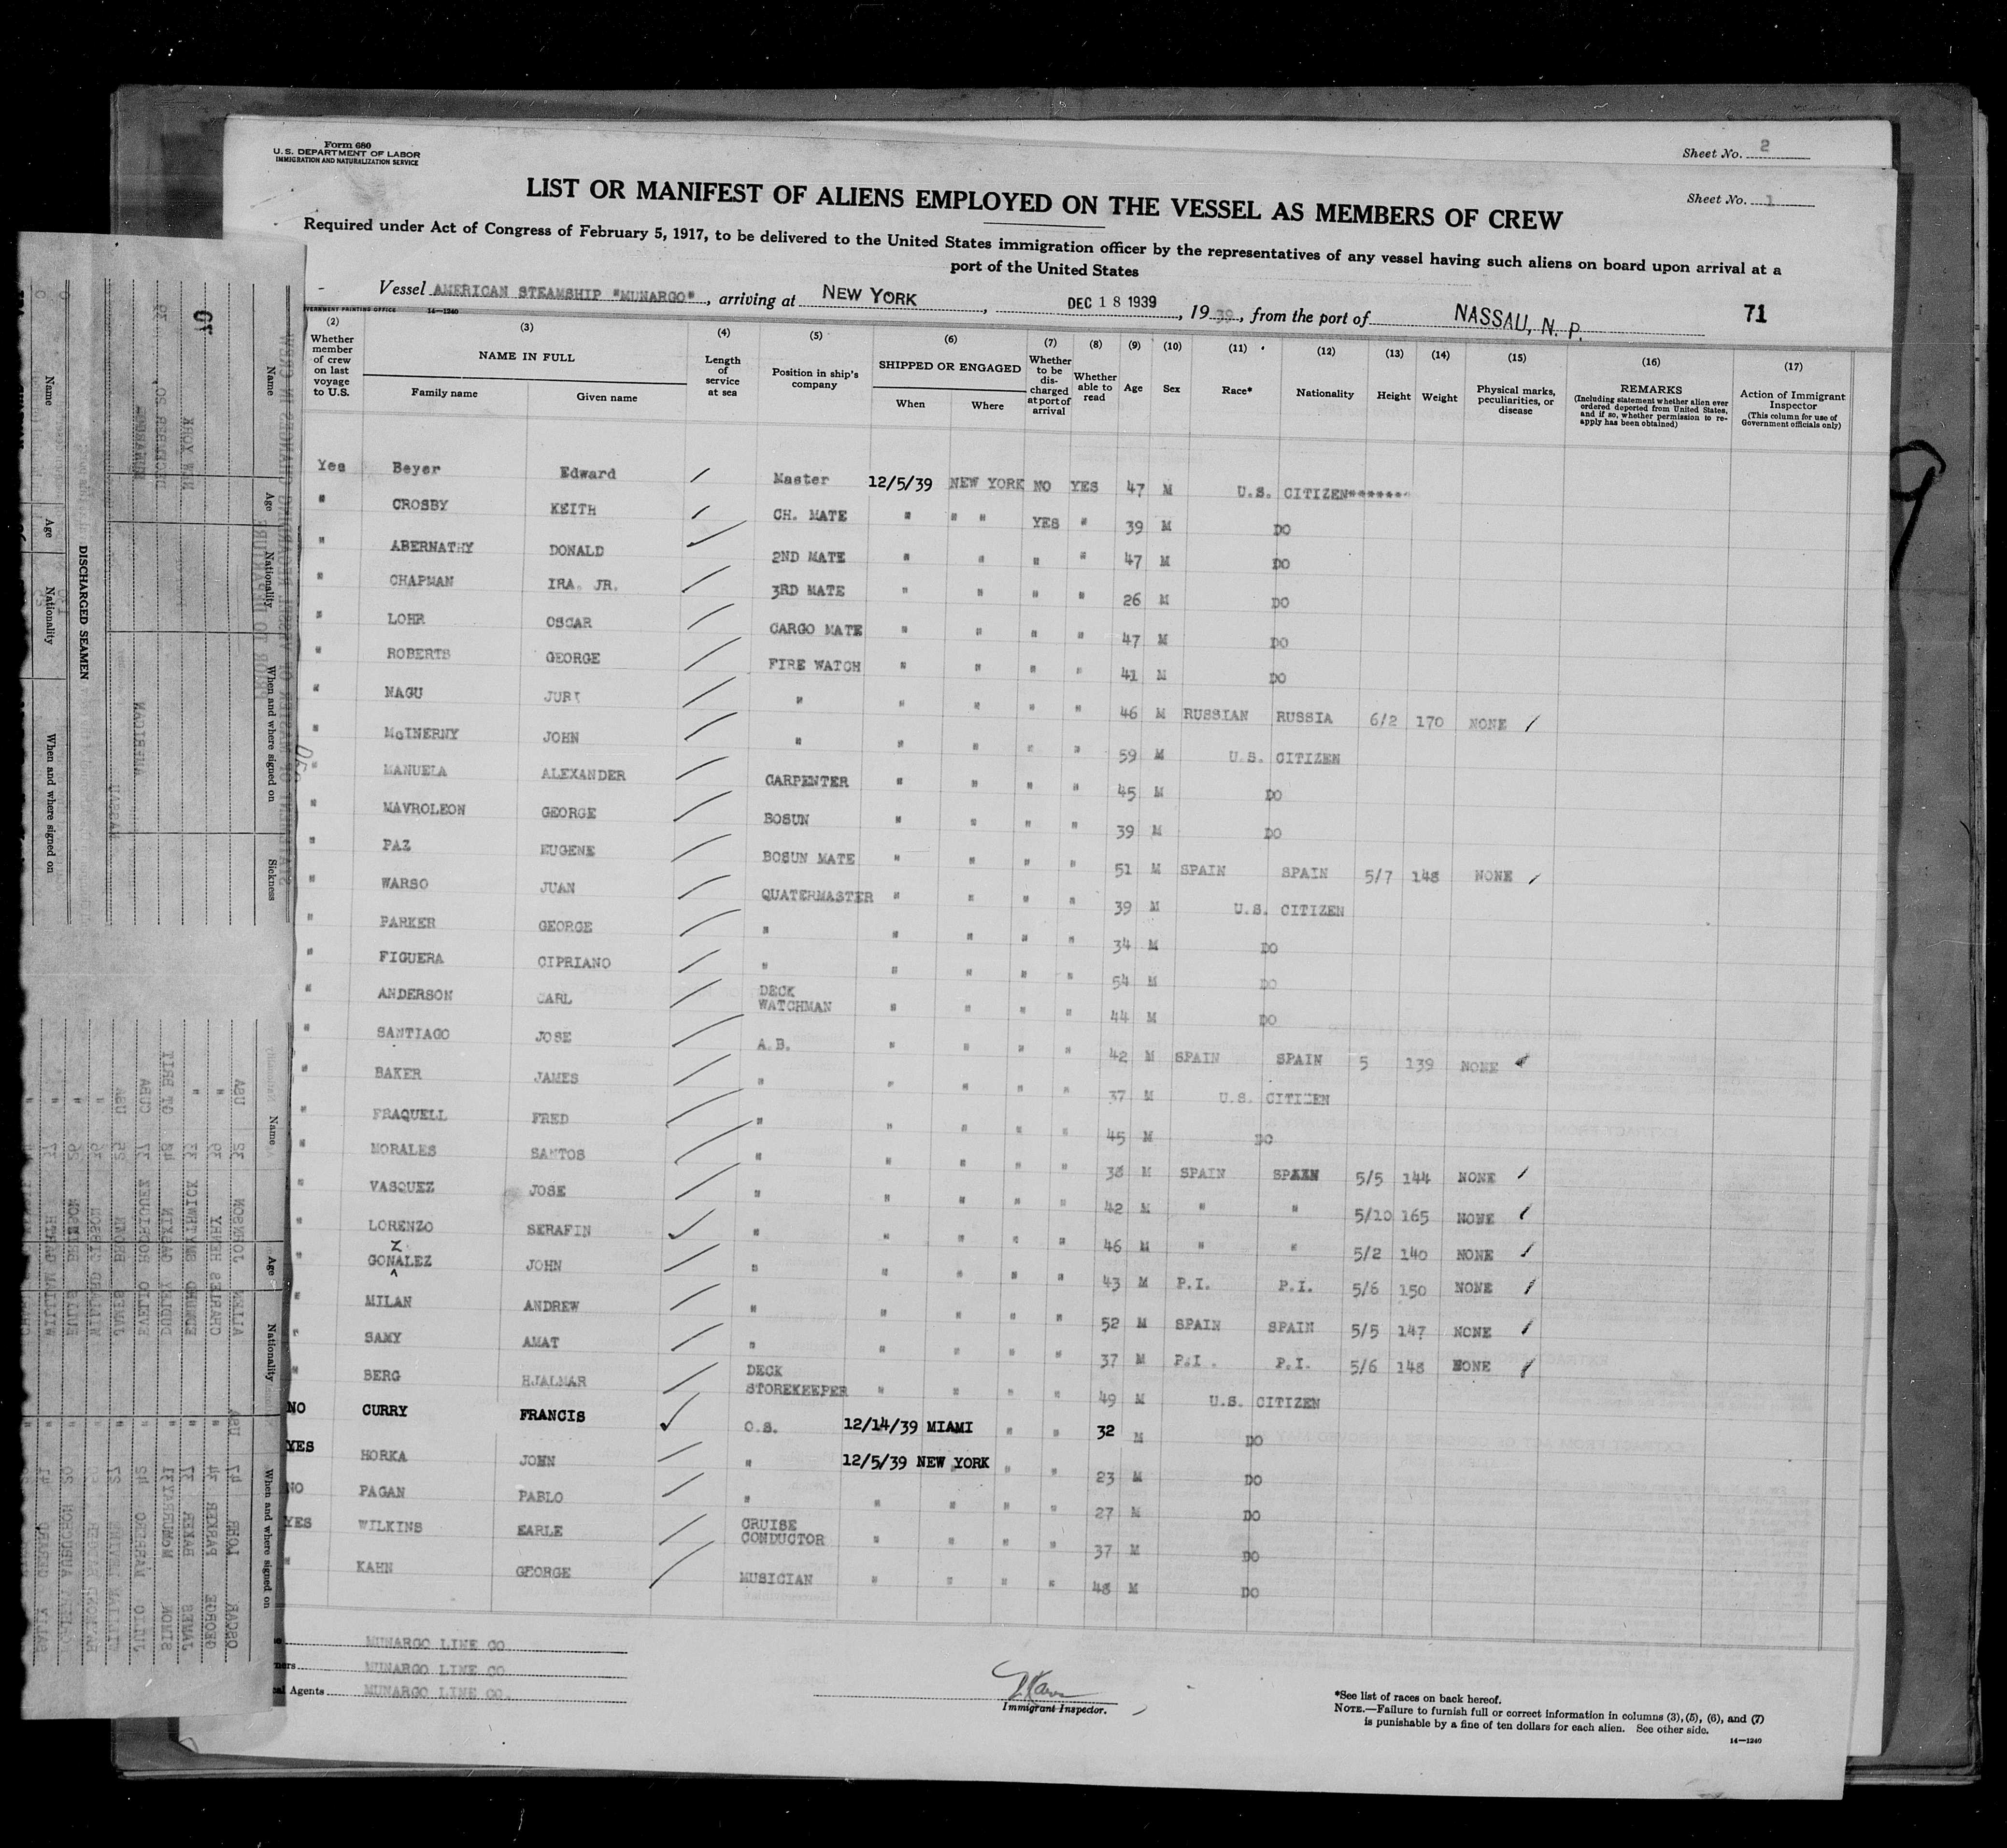 Form 680
U.S. DEPARTMENT OF LABOR
IMMIGRATION AND NATURALIZATION SERVICE
Sheet No. 2
Sheet No. 1
LIST OR MANIFEST OF ALIENS EMPLOYED ON THE VESSEL AS MEMBERS OF CREW
Required under Act of Congress of February 5, 1917, to be delivered to the United States immigration officer by the representatives of any vessel having such aliens on board upon arrival at a
port of the United States
Vessel AMERICAN STEAMSHIP "MUNARGO", arriving at NEW YORK, DEC 18 1939, 1939, from the port of NASSAU, N. P. 71
14—1240
(2) Whether member of crew on last voyage to U.S. (3) NAME IN FULL Family name Given name (4) Length of service at sea (5) Position in ship's company (6) SHIPPED OR ENGAGED When Where (7) Whether to be discharged at port of arrival (8) Whether able to read (9) Age (10) Sex (11) Race* (12) Nationality (13) Height (14) Weight (15) Physical marks, peculiarities, or disease (16) REMARKS (Including statement whether alien ever ordered deported from United States, and if so, whether permission to re-apply has been obtained) (17) Action of Immigrant Inspector (This column for use of Government officials only)
Yes Beyer Edward Master 12/5/39 NEW YORK NO YES 47 M U.S. CITIZEN*******
" CROSBY KEITH CH. MATE " " " YES " 39 M DO
" ABERNATHY DONALD 2ND MATE " " " " 47 M DO
" CHAPMAN IRA. JR. 3RD MATE " " " " 26 M DO
" LOHR OSCAR CARGO MATE " " " " 47 M DO
" ROBERTS GEORGE FIRE WATCH " " " " 41 M DO
" NAGU JURI " " " " " 46 M RUSSIAN RUSSIA 6/2 170 NONE
" McINERNY JOHN " " " " " 59 M U.S. CITIZEN
" MANUELA ALEXANDER CARPENTER " " " " 45 M DO
" MAVROLEON GEORGE BOSUN " " " " 39 M DO
" PAZ EUGENE BOSUN MATE " " " " 51 M SPAIN SPAIN 5/7 148 NONE
" WARSO JUAN QUATERMASTER " " " " 39 M U.S. CITIZEN
" PARKER GEORGE " " " " " 34 M DO
" FIGUERA CIPRIANO " " " " " 54 M DO
" ANDERSON CARL DECK WATCHMAN " " " " 44 M DO
" SANTIAGO JOSE A.B. " " " " 42 M SPAIN SPAIN 5 139 NONE
" BAKER JAMES " " " " " 37 M U.S. CITIZEN
" FRAQUELL FRED " " " " " 45 M DO
" MORALES SANTOS " " " " " 38 M SPAIN SPAIN 5/5 144 NONE
" VASQUEZ JOSE " " " " " 42 M " " 5/10 165 NONE
" LORENZO SERAFIN " " " " " 46 M " " 5/2 140 NONE
" GONZALEZ JOHN " " " " " 43 M P.I. P.I. 5/6 150 NONE
" MILAN ANDREW " " " " " 52 M SPAIN SPAIN 5/5 147 NONE
" SAMY AMAT " " " " " 37 M P.I. P.I. 5/6 148 NONE
" BERG HJALMAR DECK STOREKEEPER " " " " 49 M U.S. CITIZEN
NO CURRY FRANCIS O.S. 12/14/39 MIAMI " " 32 M DO
YES HORKA JOHN " 12/5/39 NEW YORK " " 23 M DO
NO PAGAN PABLO " " " " " 27 M DO
YES WILKINS EARLE CRUISE CONDUCTOR " " " " 37 M DO
" KAHN GEORGE MUSICIAN " " " " 48 M DO
MUNARGO LINE CO
MUNARGO LINE CO
Agents MUNARGO LINE CO.
Immigrant Inspector.
*See list of races on back hereof.
NOTE.—Failure to furnish full or correct information in columns (3), (5), (6), and (7)
is punishable by a fine of ten dollars for each alien. See other side.
14—1240
DISCHARGED SEAMEN
Name Age Nationality When and where signed on
Name Age Nationality When and where signed on Sickness
Name Age Nationality When and where signed on